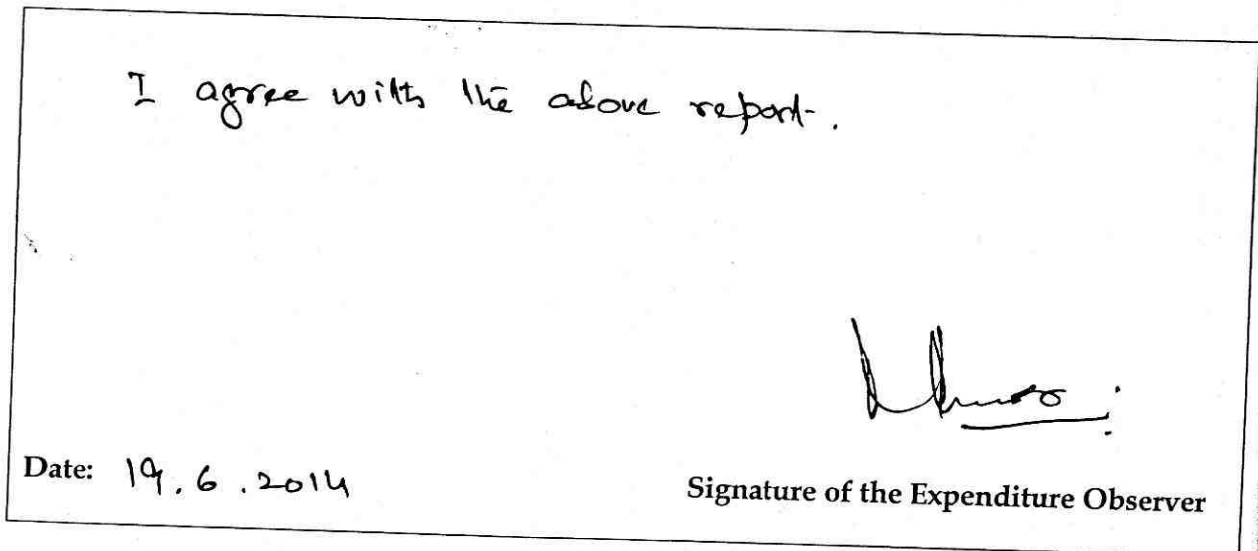 I agree with the above report.
Date: 19.6.2014
Signature of the Expenditure Observer